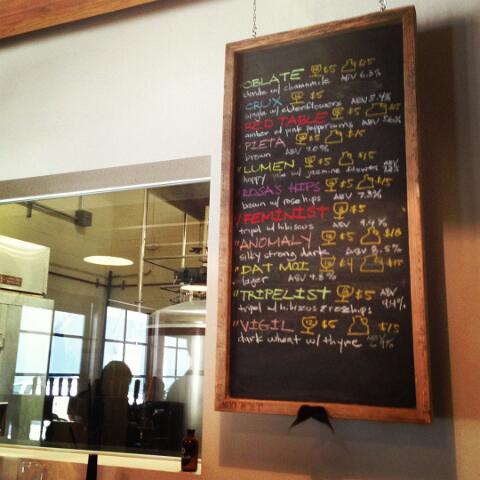 "OBLATE $5 $15
dubbel w/ chamomile ABV 6.3%
CRUX $5
single w/ elderflowers ABV 5.4%
RED TABLE $5 $15
amber w/ pink peppercorns ABV
PIETA $5 $15
brown ABV 7.0%
"LUMEN $5 $15
hoppy w/ jasmine flowers ABV
ROSA'S HIPS $5 $15
brown w/ rose hips ABV 7.3%
"FEMINIST $5
tripel w/ hibiscus ABV 9.4%
"ANOMALY $5 $18
silky strong dark ABV 8.5%
"DAT MOI $4 $15
lager ABV 4.8%
"TRIPELIST $5
tripel w/ hibiscus & rosehips ABV 9.4%
"VIGIL $5 $15
dark wheat w/ thyme ABV